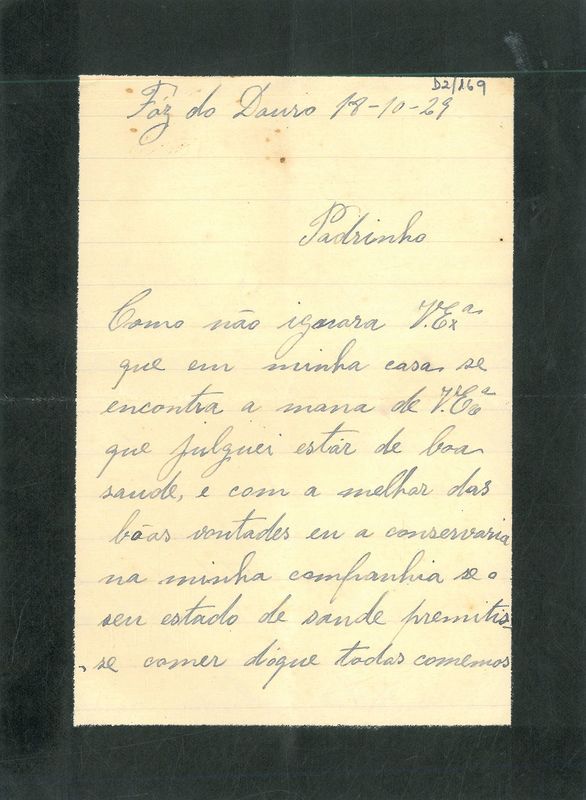 D2/169
Fóz do Douro 18-10-29
Padrinho
Como não ignora V.Exª
que em minha casa se
encontra a mana de V.Exª
que julguei estár de boa
saude, e com a melhar das
bôas vontades eu a conservaria
na minha companhia se o
seu estado de saude premitis-
se comer dóque todas comemos